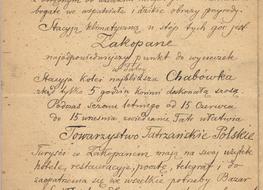 bogate we wspaniałe i dzikie obrazy przyrody.
Stacyą klimatyczną u stóp tych gór jest
Zakopane
najodpowiedniejszy punkt do wycieczek
w Tatry.
Stacya kolei najbliższa Chabówka
tylko 5 godzin końmi doskonałą szosą.
Podczas sezonu letniego od 15 Czerwca
do 15 września zwiedzanie Tatr ułatwia
Towarzystwo Tatrzańskie Polskie
Turyści w Zakopanem, mają na swój użytek
hotele, restauracyje, pocztę, telegraf i do
zaopatrzenia się we wszelkie potrzeby Bazar